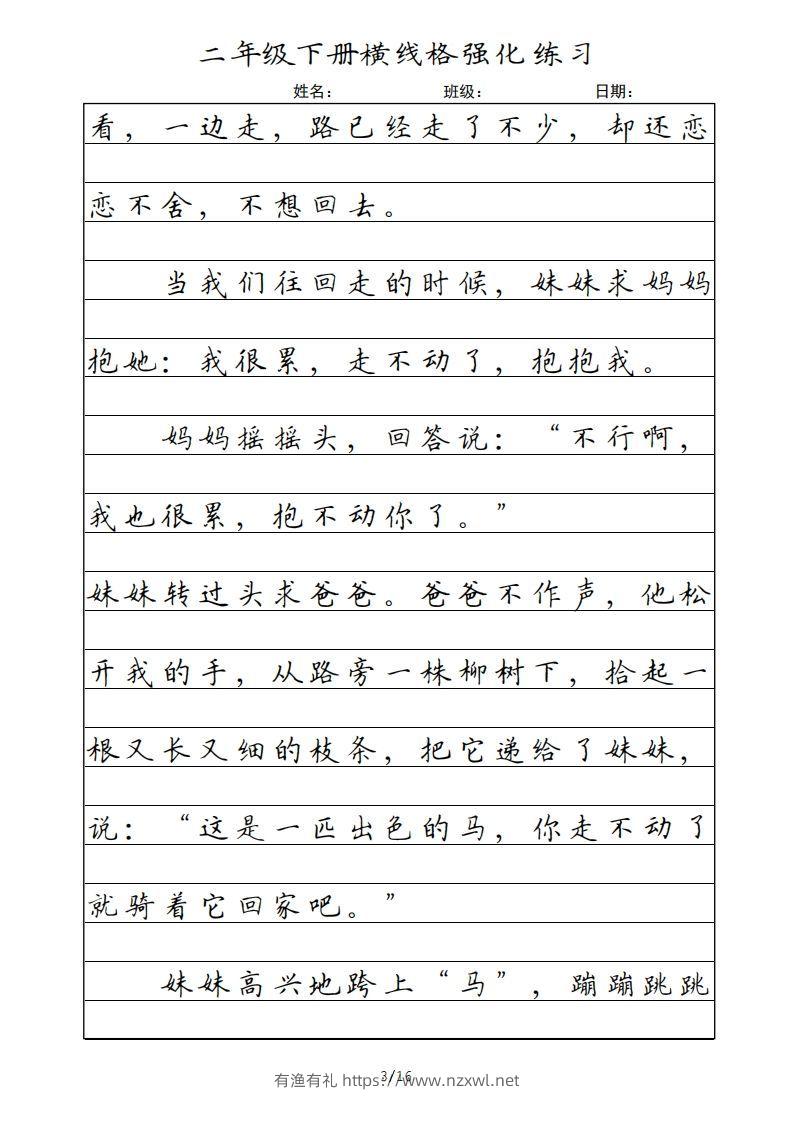 二年级下册横线格强化练习
姓名： 班级： 日期：
看，一边走，路已经走了不少，却还恋
恋不舍，不想回去。
当我们往回走的时候，妹妹求妈妈
抱她：我很累，走不动了，抱抱我。
妈妈摇摇头，回答说：“不行啊，
我也很累，抱不动你了。”
妹妹转过头求爸爸。爸爸不作声，他松
开我的手，从路旁一株柳树下，拾起一
根又长又细的枝条，把它递给了妹妹，
说：“这是一匹出色的马，你走不动了
就骑着它回家吧。”
妹妹高兴地跨上“马”，蹦蹦跳跳
3/16
有渔有礼 https://www.nzxwl.net